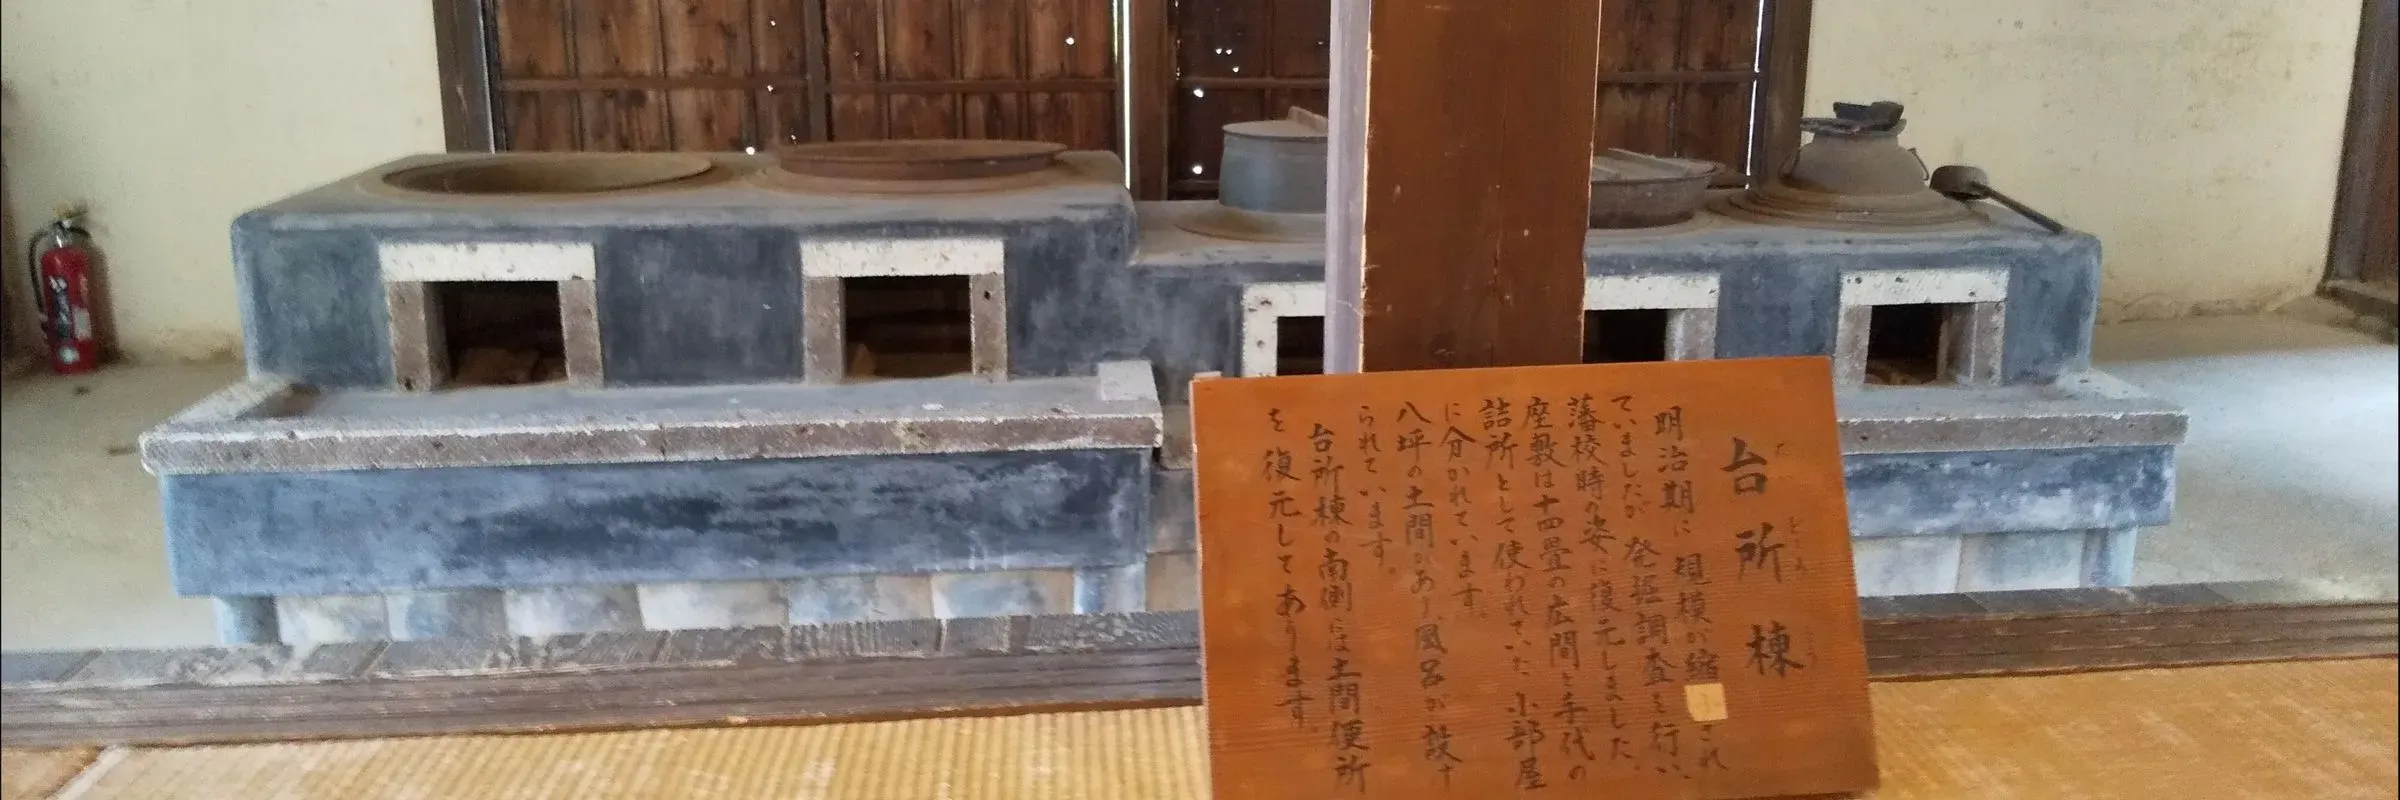 台所棟
明治期に規模が縮され
ていましたが発掘調査を行い、
藩校時の姿に復元しました。
座敷は十四畳の広間と手代の
詰所として使われていた小部屋
に分かれています。
八坪の土間があり風呂が設け
られています。
台所棟の南側には土間便所
を復元してあります。